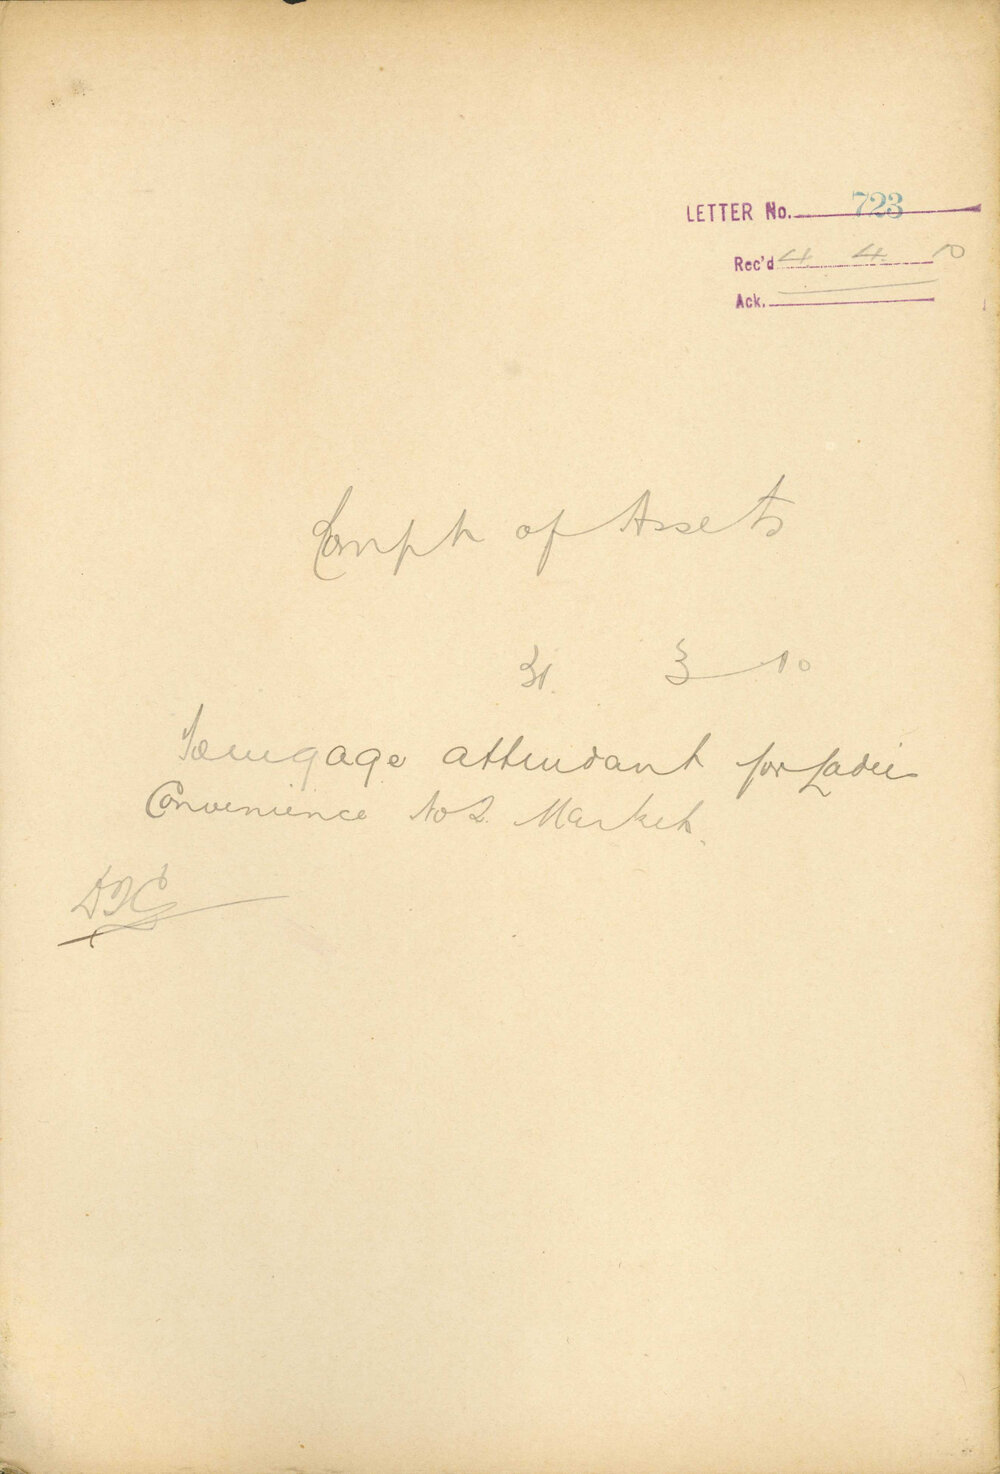 LETTER No. 723
Rec'd 4. 4. 10
Ack.
of Assets
31. 3 10
To engage attendant for Ladies
Convenience No 2. Market.